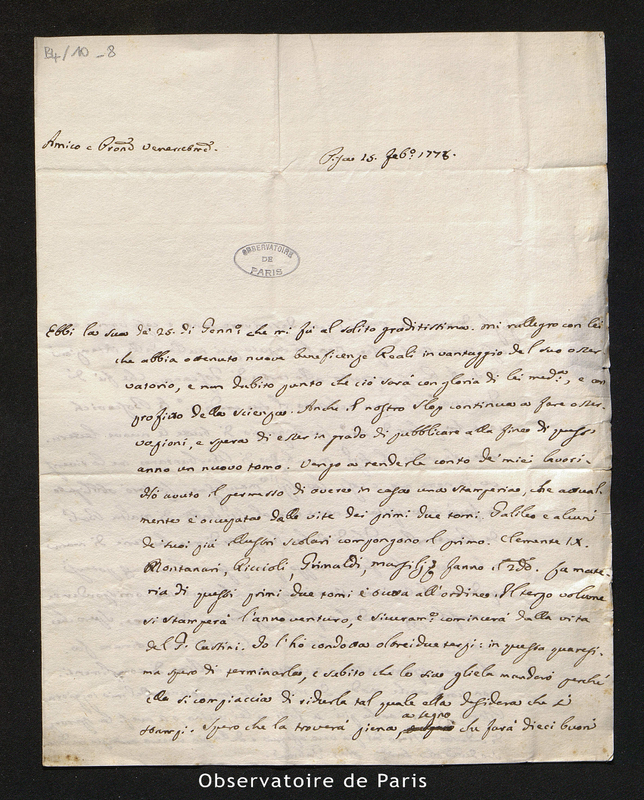 B4/10-8
Amico e Pron.e Veneratiss.mo
Pisa 15. Feb.o 1778.
OBSERVATOIRE
DE
PARIS
Ebbi la sua de' 25. di Genn.o che mi fù al solito graditissima. Mi rallegro con lei
che abbia ottenuto nuove beneficenze Reali in vantaggio del suo osser
vatorio, e non dubito punto che ciò sarà con gloria di lei med.a, e con
profitto della scienza. Anche il nostro Slop continua a fare osser
vazioni, e spera di esser in grado di pubblicare alla fine di quest'
anno un nuovo tomo. Vengo a renderle conto de' miei lavori.
Hò avuto il permesso di avere in casa una stamperia, che attual
mente è occupata dalle vite dei primi due tomi. Galileo e alcuni
de' suoi più illustri scolari compongono il primo. Clemente IX.
Montanari, Riccioli, Grimaldi, Marsilj fanno il 2do. La mate
ria di questi primi due tomi è tutta all'ordine. Il terzo volume
si stamperà l'anno venturo, e sicuram.e comincerà dalla vita
del P. Cassini. Io l'hò condotta oltre i due terzi: in questa quaresi
ma spero di terminarla, e subito che lo sia gliela manderò perchè
ella si compiaccia di ridurla tal quale ella desidera che si
stampi. Spero che la troverà piena, a segno che farà dieci buoni
Observatoire de Paris